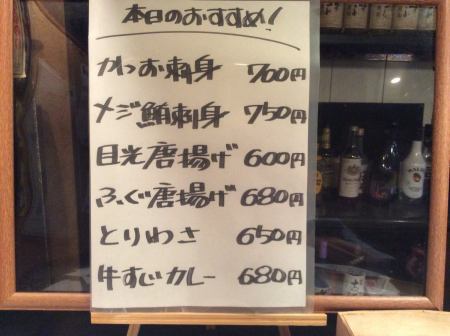 本日のおすすめ!
かつお刺身 700円
メジ鮪刺身 750円
目光唐揚げ 600円
ふぐ唐揚げ 680円
とりわさ 650円
牛すじカレー 680円